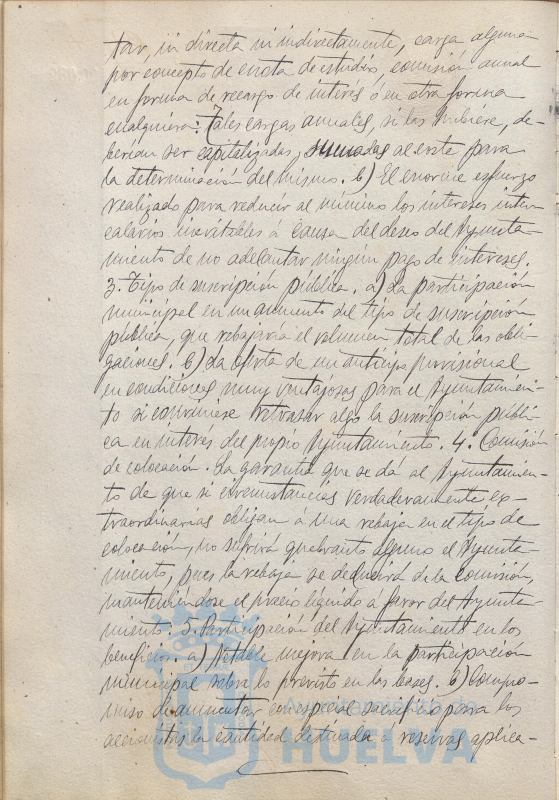 tar, ni directa ni indirectamente, carga alguna
por concepto de cuota de estudios, comisión anual
en forma de recargo de interés ó en otra forma
cualquiera. Tales cargas anuales, si las hubiere, de-
berían ser capitalizadas, sumadas al coste para
la determinación del mismo. b) El enorme esfuerzo
realizado para reducir al mínimo los intereses inter-
calarios inevitables á causa del deseo del Ayunta-
miento de no adelantar ningún pago de intereses.
3. Tipo de suscripción pública. a) La participación
municipal en un aumento del tipo de suscripción
pública, que rebajaría el volumen total de las obli-
gaciones. b) La oferta de un anticipo provisional
en condiciones muy ventajosas para el Ayuntamien-
to si conviniese retrasar algo la suscripción públi-
ca en interés del propio Ayuntamiento. 4. Comisión
de colocación. La garantía que se da al Ayuntamien-
to de que si circunstancias verdaderamente ex-
traordinarias obligan á una rebaja en el tipo de
colocación, no sufrirá quebranto alguno el Ayunta-
miento, pues la rebaja se deducirá de la comisión,
manteniéndose el precio líquido á favor del Ayunta-
miento. 5. Participación del Ayuntamiento en los
beneficios. a) Notable mejora en la participación
municipal sobre lo previsto en las bases. b) Compro-
miso de aumentar con especial sacrificio para los
accionistas la cantidad destinada a reservas aplica-
HUELVA